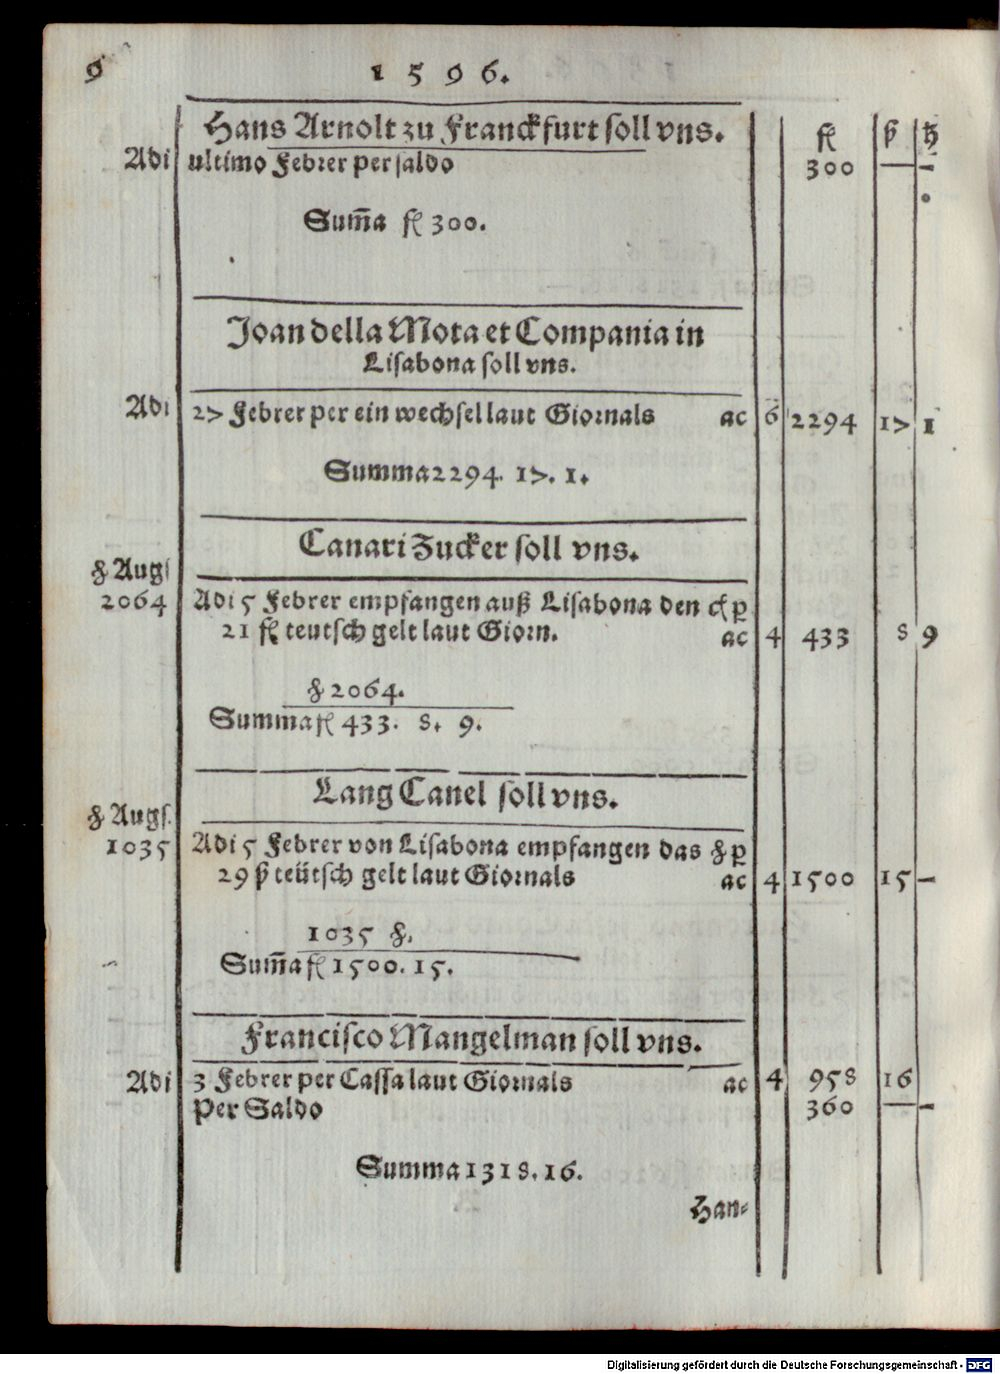 9 1596.
Hans Arnolt zu Franckfurt soll vns. fl ß ₰
Adi ultimo Febrer per saldo 300 — —
Sum̄a fl 300.
Joan della Mota et Compania in
Lisabona soll vns.
Adi 27 Febrer per ein wechsel laut Giornals ac 6 2294 17 1
Summa 2294. 17. 1.
Canari Zucker soll vns.
℔ Augs
2064 Adi 5 Febrer empfangen auß Lisabona den
21 fl teutsch gelt laut Giorn. ac 4 433 8 9
℔ 2064.
Summa fl 433. 8. 9.
Lang Canel soll vns.
℔ Augs.
1035 Adi 5 Febrer von Lisabona empfangen das ℔ ꝑ
29 ß teütsch gelt laut Giornals ac 4 1500 15 —
1035 ℔.
Sum̄a fl 1500. 15.
Francisco Mangelman soll vns.
Adi 3 Febrer per Cassa laut Giornals ac 4 958 16
Per Saldo 360 — —
Summa 1318. 16.
Han-
Digitalisierung gefördert durch die Deutsche Forschungsgemeinschaft - DFG